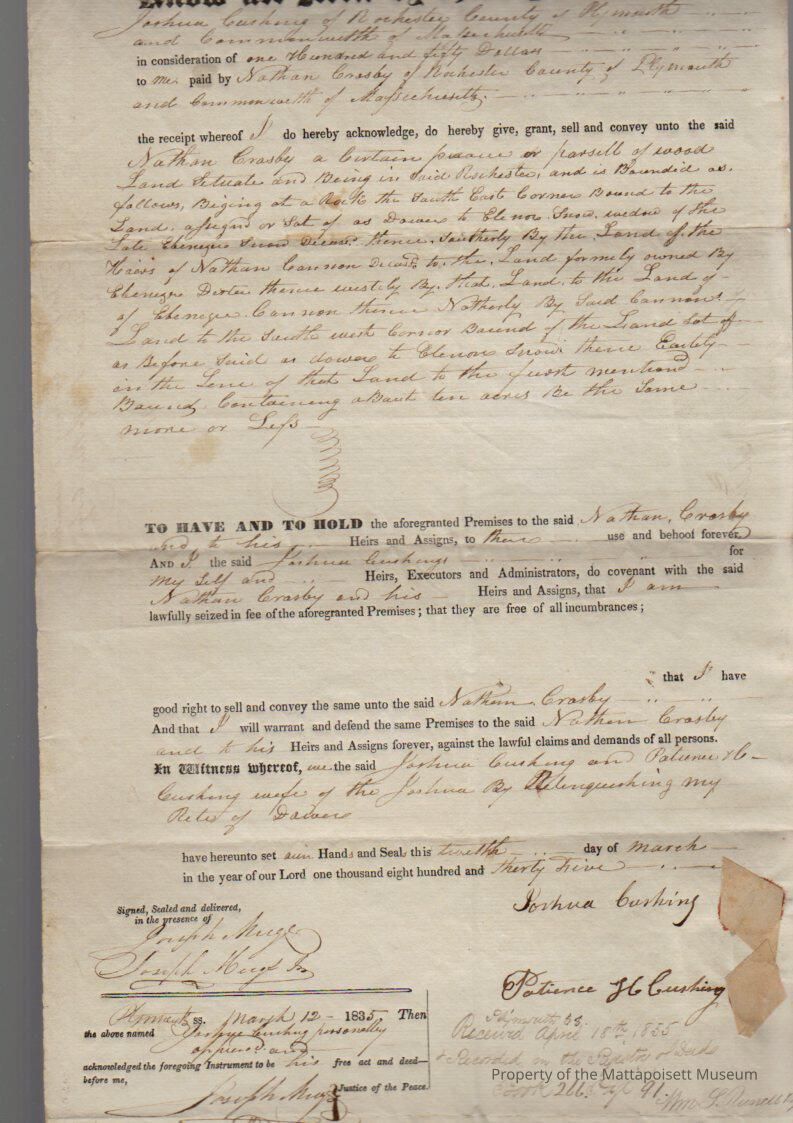 Know all Men by
Joshua Cushing of Rochester County of Plymouth
and Commonwelth of Massechusetts
in consideration of one Hundred and fifty Dollars
to me paid by Nathan Crosby of Rochester County of Plymouth
and Commonwelth of Massechusetts
the receipt whereof I do hereby acknowledge, do hereby give, grant, sell and convey unto the said
Nathan Crosby a Certain peace or parsell of wood
Land Setuate and Being in Said Rochester, and is Boundid as.
follows, Beging at a Rock the South East Cornor Bound to the
Land. asignd or Sot of as Dower to Elenor. Snow. wedow of the
Late Ebenezer Snow Deceas. thence. Southerly By the. Land of. the
Haiers of Nathan Cannon Deceasd to. the. Land formely owned By
Ebenezer Dexter thence westely By. that. Land. to the Land of
of Ebenezer. Cannon thence Notherly By Said Cannons.
Land to the South west Cornor Bound of the Land Sot of
as Before Said as dower to Elenor Snow thence Eastely
on the Line of that Land to the furst mentiond
Bound. Containing about ten acres Be the Same
more or Less
TO HAVE AND TO HOLD the aforegranted Premises to the said Nathan, Crosby
and to his Heirs and Assigns, to their use and behoof forever.
AND I the said Joshua Cushings for
my self and Heirs, Executors and Administrators, do covenant with the said
Nathan Crosby and his Heirs and Assigns, that I am
lawfully seized in fee of the aforegranted Premises; that they are free of all incumbrances;
that I have
good right to sell and convey the same unto the said Nathan Crosby
And that I will warrant and defend the same Premises to the said Nathan Crosby
and to his Heirs and Assigns forever, against the lawful claims and demands of all persons.
In Witness whereof, we the said Joshua Cushing and Patience H C
Cushing wefe of the Joshua By Relenquishing my
Rites of Dower
have hereunto set our Hands and Seals this twelth day of march
in the year of our Lord one thousand eight hundred and thirty five
Joshua Cushing
Signed, Sealed and delivered,
in the presence of
Joseph Meigs
Joseph Meigs Jr
Patience H C Cushing
Plymouth ss. March 12 - 1835, Then
the above named Joshua Cushing personalley
appeared and
acknowledged the foregoing Instrument to be his free act and deed—
before me,
Joseph Meigs Justice of the Peace.
Plymouth ss.
Received April 18th 1835
& Recorded in the Registry of Deeds
Book 266 91
Property of the Mattapoisett Museum